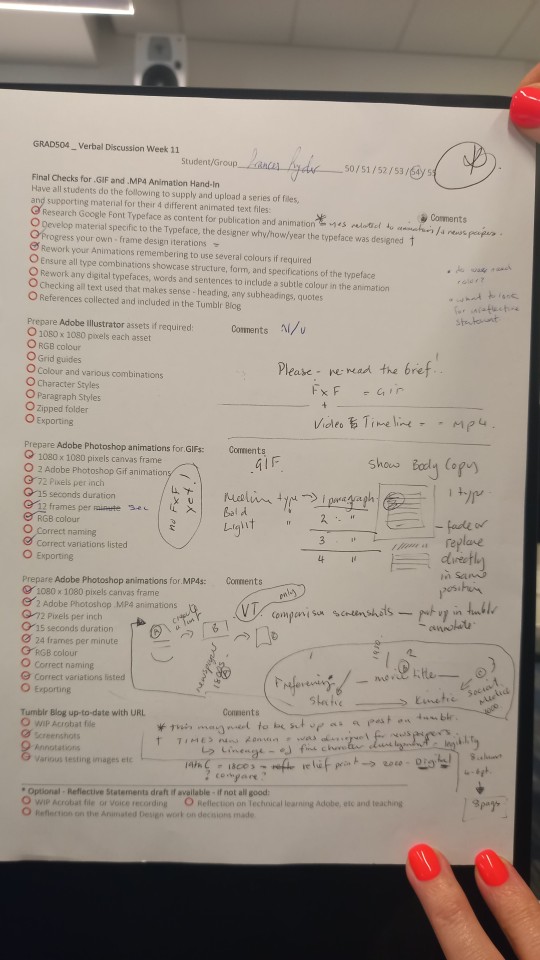 GRAD504 _ Verbal Discussion Week 11
Student/Group Frances 50 / 51 / 52 / 53 / 54 / 55
Final Checks for .GIF and .MP4 Animation Hand-In
Have all students do the following to supply and upload a series of files,
and supporting material for their 4 different animated text files:
Comments
Research Google Font Typeface as content for publication and animation * related to
Develop material specific to the Typeface, the designer why/how/year the typeface was designed †
Progress your own - frame design iterations =
Rework your Animations remembering to use several colours if required
Ensure all type combinations showcase structure, form, and specifications of the typeface
Rework any digital typefaces, words and sentences to include a subtle colour in the animation
Checking all text used that makes sense - heading, any subheadings, quotes
References collected and included in the Tumblr Blog
statement
Prepare Adobe Illustrator assets if required: Comments N/U
1080 x 1080 pixels each asset
RGB colour
Grid guides
Colour and various combinations
Character Styles
Paragraph Styles
Zipped folder
Exporting
Please - re-read the brief!
FxF = Gif
+
Video Timeline = - Mp4.
Prepare Adobe Photoshop animations for GIFs: Comments
1080 x 1080 pixels canvas frame
2 Adobe Photoshop Gif animations
72 Pixels per inch
15 seconds duration
12 frames per minute sec
RGB colour
Correct naming
Correct variations listed
Exporting
no FxF yet!
GIF.
Show Body Copy
Medium type → 1 paragraph
Bold " 2 "
Light " 3 "
4 "
1 type.
- fade or
replace
directly
in same
position
Prepare Adobe Photoshop animations for MP4s: Comments
1080 x 1080 pixels canvas frame
2 Adobe Photoshop .MP4 animations
72 Pixels per inch
15 seconds duration
24 frames per minute
RGB colour
Correct naming
Correct variations listed
Exporting
VT only
comparison screenshots - put up in tumblr
- annotate.
A → B →
newspaper
1800s
1 2 3
- movie title -
Static → Kinetic
Social
Media
Tumblr Blog up-to-date with URL Comments
WIP Acrobat file
Screenshots
Annotations
Various testing images etc
* This to be set up as a post on tumblr.
† TIMES new Roman = was developed for newspapers
↳ Lineage - of fine character development - legibility
1800s relief print → 2000 - Digital
? compare?
8 pages
* Optional - Reflective Statements draft if available - if not all good:
WIP Acrobat file or Voice recording Reflection on Technical learning Adobe, etc and teaching
Reflection on the Animated Design work on decisions made.